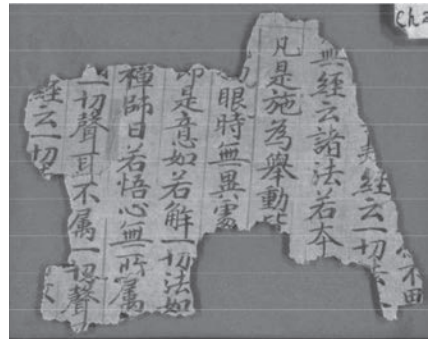 不
經云一切
經云諸法若本
凡是施為舉動
眼時無異處
即是意如若解一切法如
禪師曰若悟心無所属
一切聲耳不属一切聲
經云一切